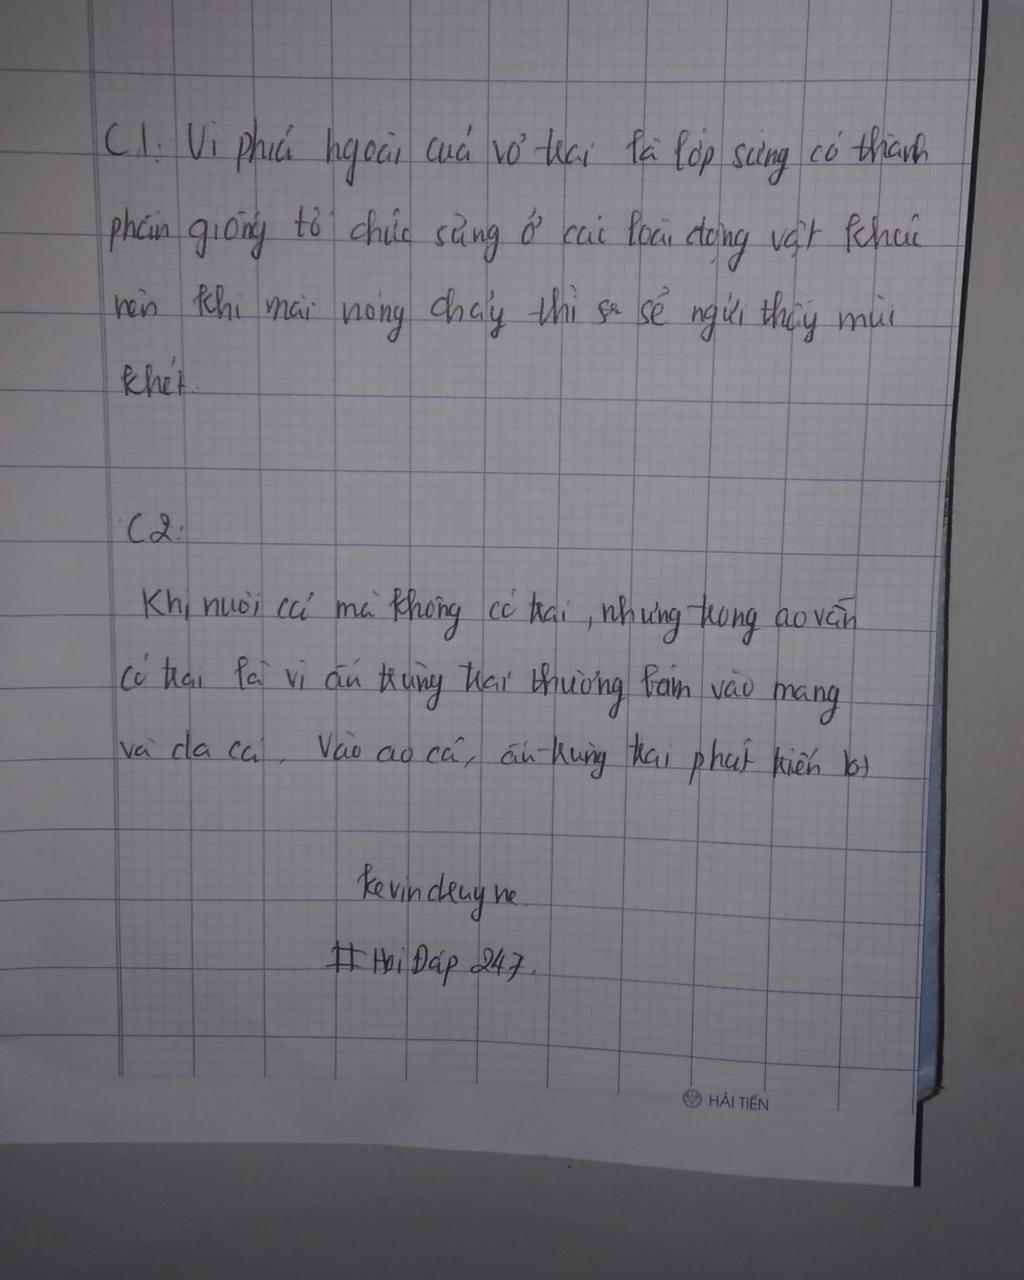 C1: Vì phía ngoài của vỏ trai là lớp sừng có thành
phần giống tổ chức sừng ở các loài động vật khác
nên khi mài nóng chảy thì sẽ ngửi thấy mùi
khét.
C2:
Khi nuôi cá mà không có trai, nhưng trong ao vẫn
có trai là vì ấu trùng trai thường bám vào mang
và da cá. Vào ao cá, ấu trùng trai phát triển bt
kevindeuyne
#HoiĐáp 247.
HẢI TIẾN